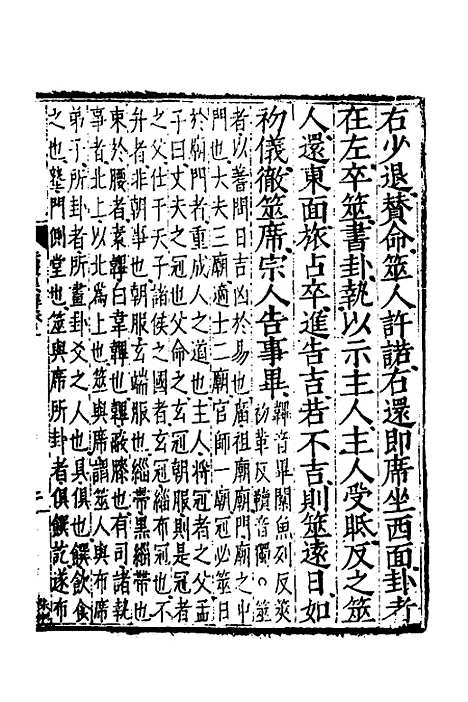 右少退賛命筮人許諾右還即席坐西面卦者
在左卒筮書卦執以示主人主人受眡反之筮
人還東面旅占卒進告吉若不吉則筮遠日如
初儀徹筮席宗人告事畢
韠音畢闑魚列反筴
初革反韥音獨○筮
者以蓍問日吉凶於易也廟祖廟廟門廟之中
門也大夫三廟適士二廟官師一廟冠必筮日
於廟門者重成人之道也主人將冠者之父孟
子曰丈夫之冠也父命之玄冠朝服則是冠者
之父仕于天子諸侯之國者玄冠玄冠也不
弁者非朝事也朝服玄端服也緇帶黑繒帶也
束於腰者素韠白韋韠也韠蔽膝也有司諸執
事者北上以北為上也筮與席謂筮人與布席
弟子所卦者畫卦爻之人也具俱也饌飲食
之也塾門側堂也筮與席所卦者俱饌訖遂布